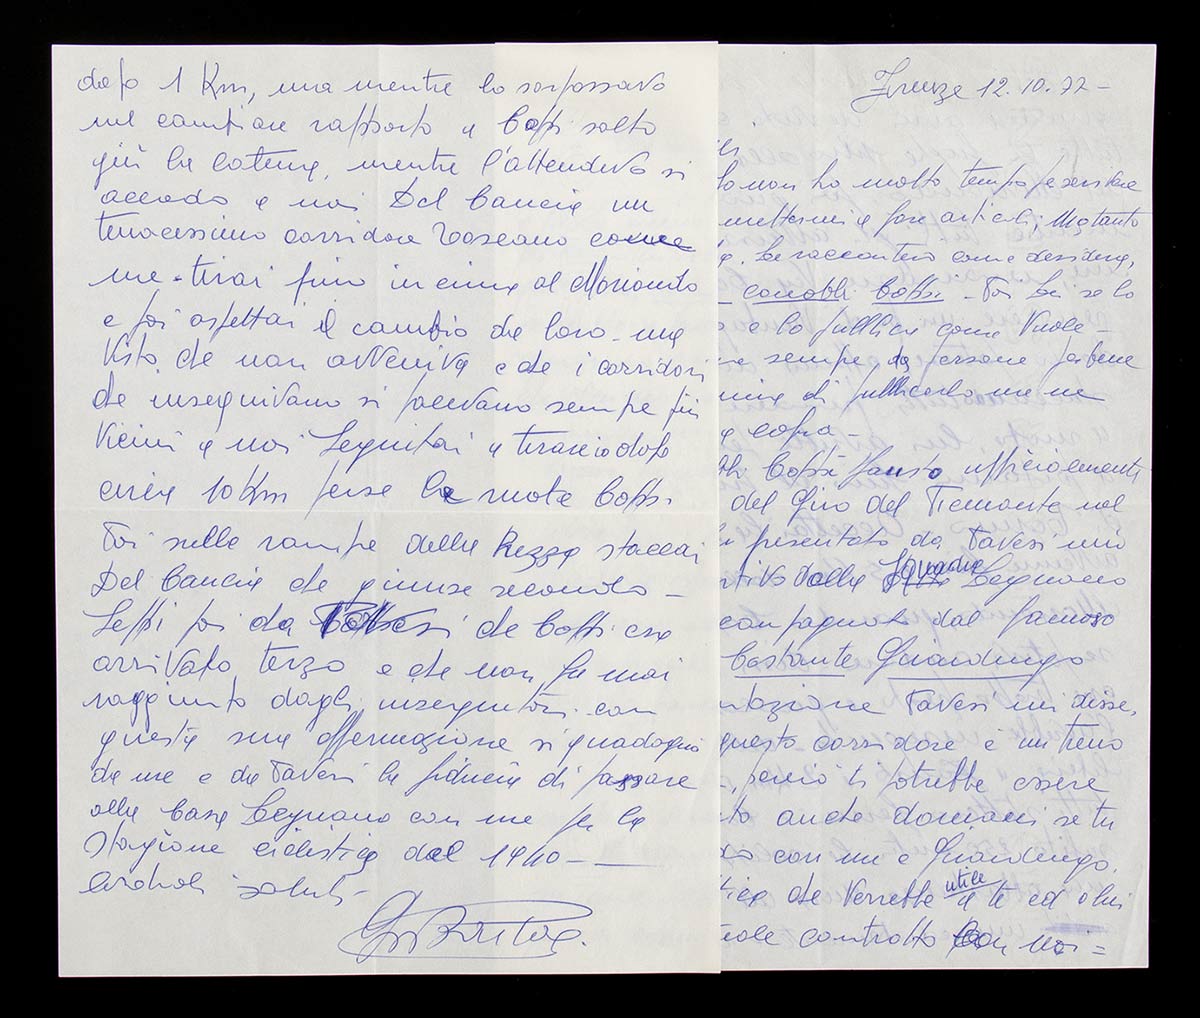 Firenze 12.10.72 -
non ho molto tempo per scrivere
mettermi a fare articoli, Ma tanto
le racconterò come desidera,
conobbi Coppi - Poi lei se lo
e lo pubblichi come vuole -
sempre da persone per bene
di pubblicarlo me ne
copia -
Coppi Fausto ufficialmente
del Giro del Piemonte nel
presentato da Pavesi mio
dalla Squadra Legnano
compagnato dal famoso
Costante Girardengo
Pavesi mi disse,
questo corridore è un treno
perciò ti potrebbe essere
anche domani se tu
con me e Girardengo,
che verrebbe utile a te ed a lui
controllo con noi =
dopo 1 Km, ma mentre lo sorpassavo
nel cambiare rapporto a Coppi saltò
giù la catena, mentre l'attendevo si
accodò a noi Del Cancia un
tenacissimo corridore Toscano come
me - tirai fino in cima al Moriondo
e poi aspettai il cambio da loro - ma
visto che non avveniva e che i corridori
che inseguivano si facevano sempre più
vicini a noi seguitai a tirare e dopo
circa 10 Km perse la ruota Coppi.
Poi sulle rampe della Rezza staccai
Del Cancia che giunse secondo -
Seppi poi da Pavesi che Coppi era
arrivato terzo e che non fu mai
raggiunto dagli inseguitori - con
questa sua affermazione si guadagnò
da me e da Pavesi la fiducia di passare
alla casa Legnano con me per la
stagione ciclistica del 1940 -
Cordiali saluti -
Gino Bartali